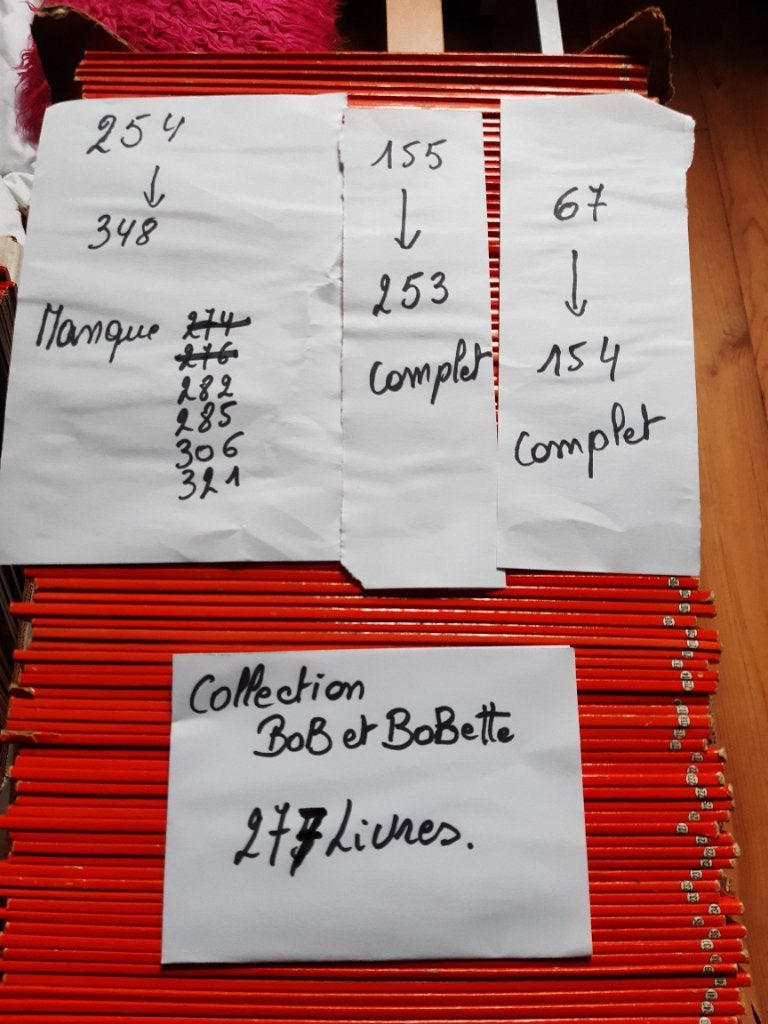 254
↓
348
Manque 274
276
282
285
306
321
155
↓
253
Complet
67
↓
154
Complet
Collection
BoB et BoBette
277 Livres.